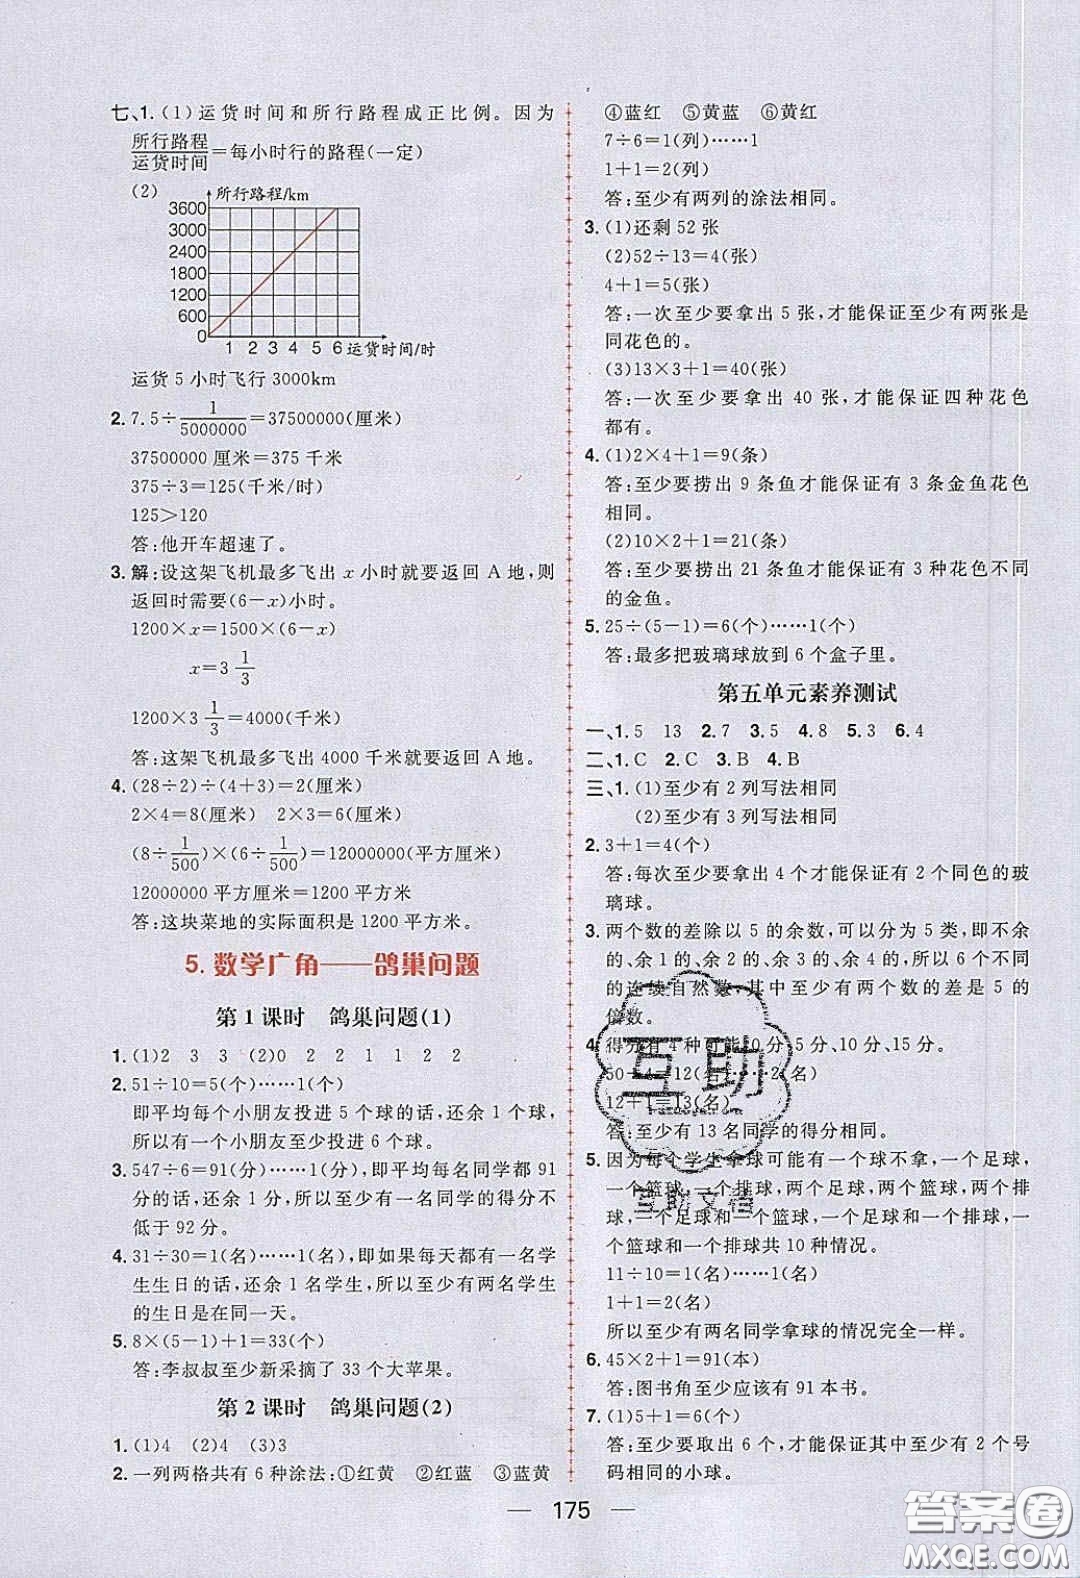 七、1.(1)运货时间和所行路程成正比例。因为
所行路程/运货时间=每小时行的路程(一定)
(2)
所行路程/km
3600
3000
2400
1800
1200
600
0
1 2 3 4 5 6 运货时间/时
运货 5 小时飞行 3000km
2. 7.5÷1/5000000=37500000(厘米)
37500000 厘米=375 千米
375÷3=125(千米/时)
125>120
答:他开车超速了。
3. 解:设这架飞机最多飞出 x 小时就要返回 A 地,则
返回时需要(6-x)小时。
1200×x=1500×(6-x)
x=3 1/3
1200×3 1/3=4000(千米)
答:这架飞机最多飞出 4000 千米就要返回 A 地。
4. (28÷2)÷(4+3)=2(厘米)
2×4=8(厘米) 2×3=6(厘米)
(8÷1/500)×(6÷1/500)=12000000(平方厘米)
12000000 平方厘米=1200 平方米
答:这块菜地的实际面积是 1200 平方米。
5. 数学广角——鸽巢问题
第 1 课时 鸽巢问题(1)
1. (1)2 3 3 (2)0 2 2 1 1 2 2
2. 51÷10=5(个)……1(个)
即平均每个小朋友投进 5 个球的话,还余 1 个球,
所以有一个小朋友至少投进 6 个球。
3. 547÷6=91(分)……1(分),即平均每名同学 91
分的话,还余 1 分,所以至少有一名同学的得分不
低于 92 分。
4. 31÷30=1(名)……1(名),即如果每天都有一名学
生生日的话,还余 1 名学生,所以至少有两名学生
的生日是在同一天。
5. 8×(5-1)+1=33(个)
答:李叔叔至少新采摘了 33 个大苹果。
第 2 课时 鸽巢问题(2)
1. (1)4 (2)4 (3)3
2. 一列两格共有 6 种涂法:①红黄 ②红蓝 ③蓝黄
④蓝红 ⑤黄蓝 ⑥黄红
7÷6=1(列)……1
1+1=2(列)
答:至少有两列的涂法相同。
3. (1)还剩 52 张
(2)52÷13=4(张)
4+1=5(张)
答:一次至少要拿出 5 张,才能保证至少有两张是
同花色的。
(3)13×3+1=40(张)
答:一次至少要拿出 40 张,才能保证四种花色
都有。
4. (1)2×4+1=9(条)
答:至少要捞出 9 条鱼才能保证有 3 条金鱼花色
相同。
(2)10×2+1=21(条)
答:至少要捞出 21 条鱼才能保证有 3 种花色不同
的金鱼。
5. 25÷(5-1)=6(个)……1(个)
答:最多把玻璃球放到 6 个盒子里。
第五单元素养测试
一、1.5 13 2.7 3.5 4.8 5.3 6.4
二、1.C 2.C 3.B 4.B
三、1.(1)至少有 2 列写法相同
(2)至少有 3 列写法相同
2. 3+1=4(个)
答:每次至少要拿出 4 个才能保证有 2 个同色的玻
璃球。
3. 两个数的差除以 5 的余数,可以分为 5 类,即不
余、余 1 的、余 2 的、余 3 的、余 4 的,所以 6 个不同
的连续自然数,其中至少有两个数的差是 5 的
倍数。
4. 得分有 4 种可能,0 分、5 分、10 分、15 分。
50÷4=12(名)……2(名)
12+1=13(名)
答:至少有 13 名同学的得分相同。
5. 因为每个学生拿球可能有一个球不拿,一个足球,
一个篮球,一个排球,两个足球,两个篮球,两个排
球,一个足球和一个篮球,一个足球和一个排球,
一个篮球和一个排球共 10 种情况。
11÷10=1(名)……1(名)
1+1=2(名)
所以至少有两名同学拿球的情况完全一样。
6. 45×2+1=91(本)
答:图书角至少应该有 91 本书。
7. (1)5+1=6(个)
答:至少要取出 6 个,才能保证其中至少有 2 个号
码相同的小球。
175
互助
互助文档
答案圈
MXQE.COM